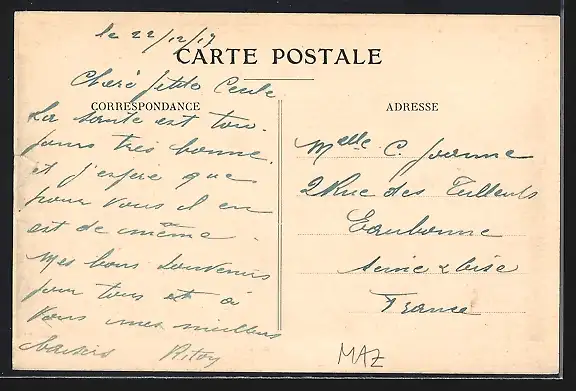 le 22/12/19
CARTE POSTALE
Chère petite Cécile
CORRESPONDANCE
La santé est tou-
jours très bonne
et j'espère que
pour vous il en
est de même.
Mes bons souvenirs
pour tous et à
vous mes meilleurs
baisers
ADRESSE
Melle C. Jeanne
2 Rue des Tilleuls
Eaubonne
Seine & Oise
France
MAZ